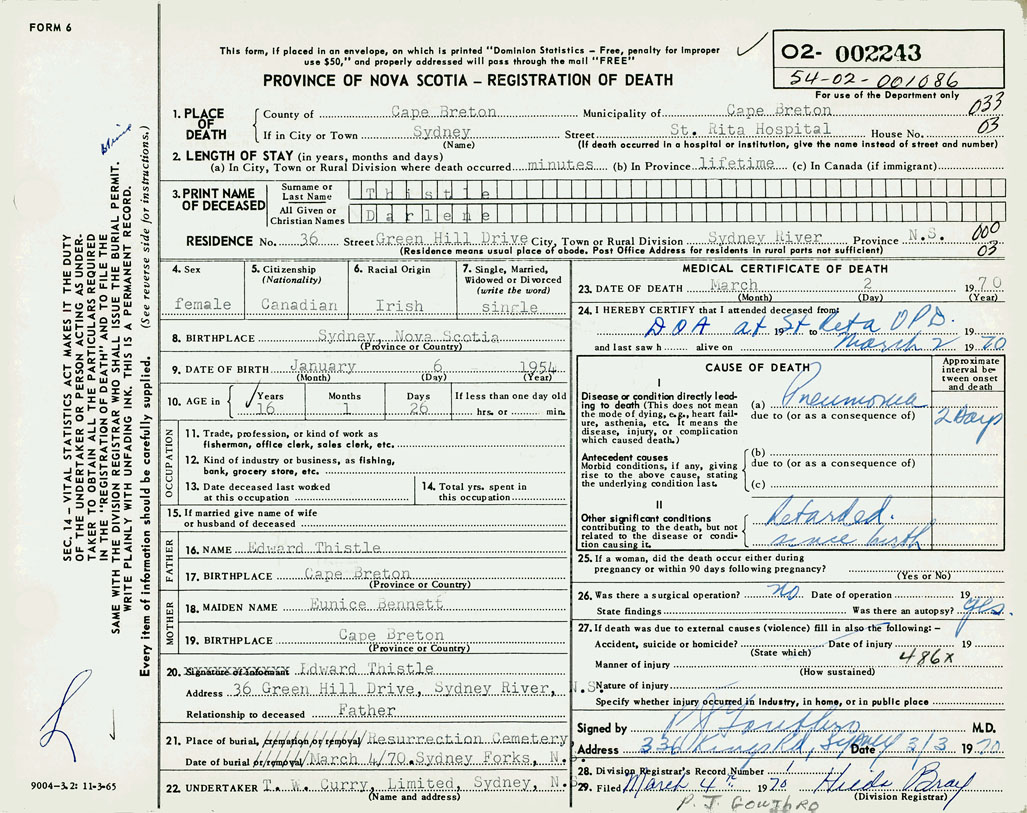 FORM 6
This form, if placed in an envelope, on which is printed "Dominion Statistics – Free, penalty for improper
use $50," and properly addressed will pass through the mail "FREE"
PROVINCE OF NOVA SCOTIA – REGISTRATION OF DEATH
02- 002243
54-02-001086
For use of the Department only
033
03
1. PLACE OF DEATH
County of Cape Breton Municipality of Cape Breton
If in City or Town Sydney Street St. Rita Hospital House No.
(Name) (If death occurred in a hospital or institution, give the name instead of street and number)
2. LENGTH OF STAY (in years, months and days)
(a) In City, Town or Rural Division where death occurred minutes (b) In Province lifetime (c) In Canada (if immigrant)
3. PRINT NAME OF DECEASED
Surname or Last Name Thistle
All Given or Christian Names Darlene
000
RESIDENCE No. 36 Street Green Hill Drive City, Town or Rural Division Sydney River Province N.S.
(Residence means usual place of abode. Post Office Address for residents in rural parts not sufficient) 02
4. Sex
female
5. Citizenship
(Nationality)
Canadian
6. Racial Origin
Irish
7. Single, Married,
Widowed or Divorced
(write the word)
single
8. BIRTHPLACE Sydney, Nova Scotia
(Province or Country)
9. DATE OF BIRTH January 6 1954
(Month) (Day) (Year)
10. AGE in Years Months Days If less than one day old
16 1 26 hrs. or min.
OCCUPATION
11. Trade, profession, or kind of work as
fisherman, office clerk, sales clerk, etc.
12. Kind of industry or business, as fishing,
bank, grocery store, etc.
13. Date deceased last worked
at this occupation
14. Total yrs. spent in
this occupation
15. If married give name of wife
or husband of deceased
FATHER
16. NAME Edward Thistle
17. BIRTHPLACE Cape Breton
(Province or Country)
MOTHER
18. MAIDEN NAME Eunice Bennett
19. BIRTHPLACE Cape Breton
(Province or Country)
20. Signature of informant Edward Thistle
Address 36 Green Hill Drive, Sydney River, N.S.
Relationship to deceased Father
21. Place of burial, cremation or removal Resurrection Cemetery
Date of burial or removal March 4/70. Sydney Forks, N.S.
22. UNDERTAKER T. W. Curry, Limited, Sydney, N.S.
(Name and address)
MEDICAL CERTIFICATE OF DEATH
23. DATE OF DEATH March 2 1970
(Month) (Day) (Year)
24. I HEREBY CERTIFY that I attended deceased from
DOA at 19 St Rita OPD. 19
to March 2
and last saw h alive on 1970
CAUSE OF DEATH
Approximate
interval be-
tween onset
and death
I
Disease or condition directly lead-
ing to death (This does not mean
the mode of dying, e.g., heart fail-
ure, asthenia, etc. It means the
disease, injury, or complication
which caused death.)
(a) Pneumonia
due to (or as a consequence of)
2 Days
Antecedent causes
Morbid conditions, if any, giving
rise to the above cause, stating
the underlying condition last.
(b)
due to (or as a consequence of)
(c)
II
Other significant conditions
contributing to the death, but not
related to the disease or condi-
tion causing it.
Retarded.
since birth
25. If a woman, did the death occur either during
pregnancy or within 90 days following pregnancy?
(Yes or No)
26. Was there a surgical operation? no Date of operation 19
State findings Was there an autopsy? yes.
27. If death was due to external causes (violence) fill in also the following: –
Accident, suicide or homicide? Date of injury 19
(State which) 486x
Manner of injury
(How sustained)
Nature of injury
Specify whether injury occurred in Industry, in home, or in public place
Signed by P J Gouthro M.D.
Address 336 Kings Rd, Sydney Date 3/3 1970
28. Division Registrar's Record Number 1
29. Filed March 4th 1970 Hilda Bray
(Division Registrar)
P. J. GOUTHRO
SEC. 14 – VITAL STATISTICS ACT MAKES IT THE DUTY
OF THE UNDERTAKER OR PERSON ACTING AS UNDER-
TAKER TO OBTAIN ALL THE PARTICULARS REQUIRED
IN THE "REGISTRATION OF DEATH" AND TO FILE THE
SAME WITH THE DIVISION REGISTRAR WHO SHALL ISSUE THE BURIAL PERMIT.
WRITE PLAINLY WITH UNFADING INK. THIS IS A PERMANENT RECORD.
Every item of information should be carefully supplied. (See reverse side for instructions.)
9004-3.2: 11-3-65